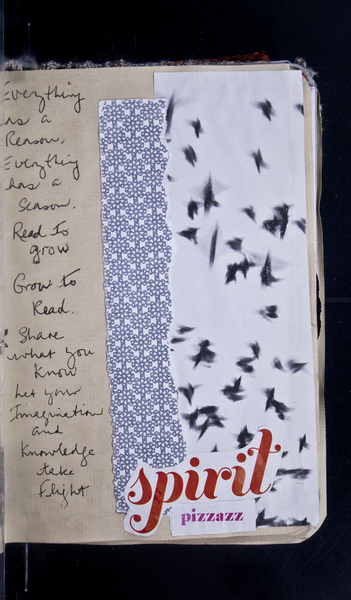 Everything
has a
Reason,
Everything
has a
Season.
Read to
grow
Grow to
Read.
Share
what you
know
Let your
Imagination
and
Knowledge
take
Flight
spirit
pizzazz